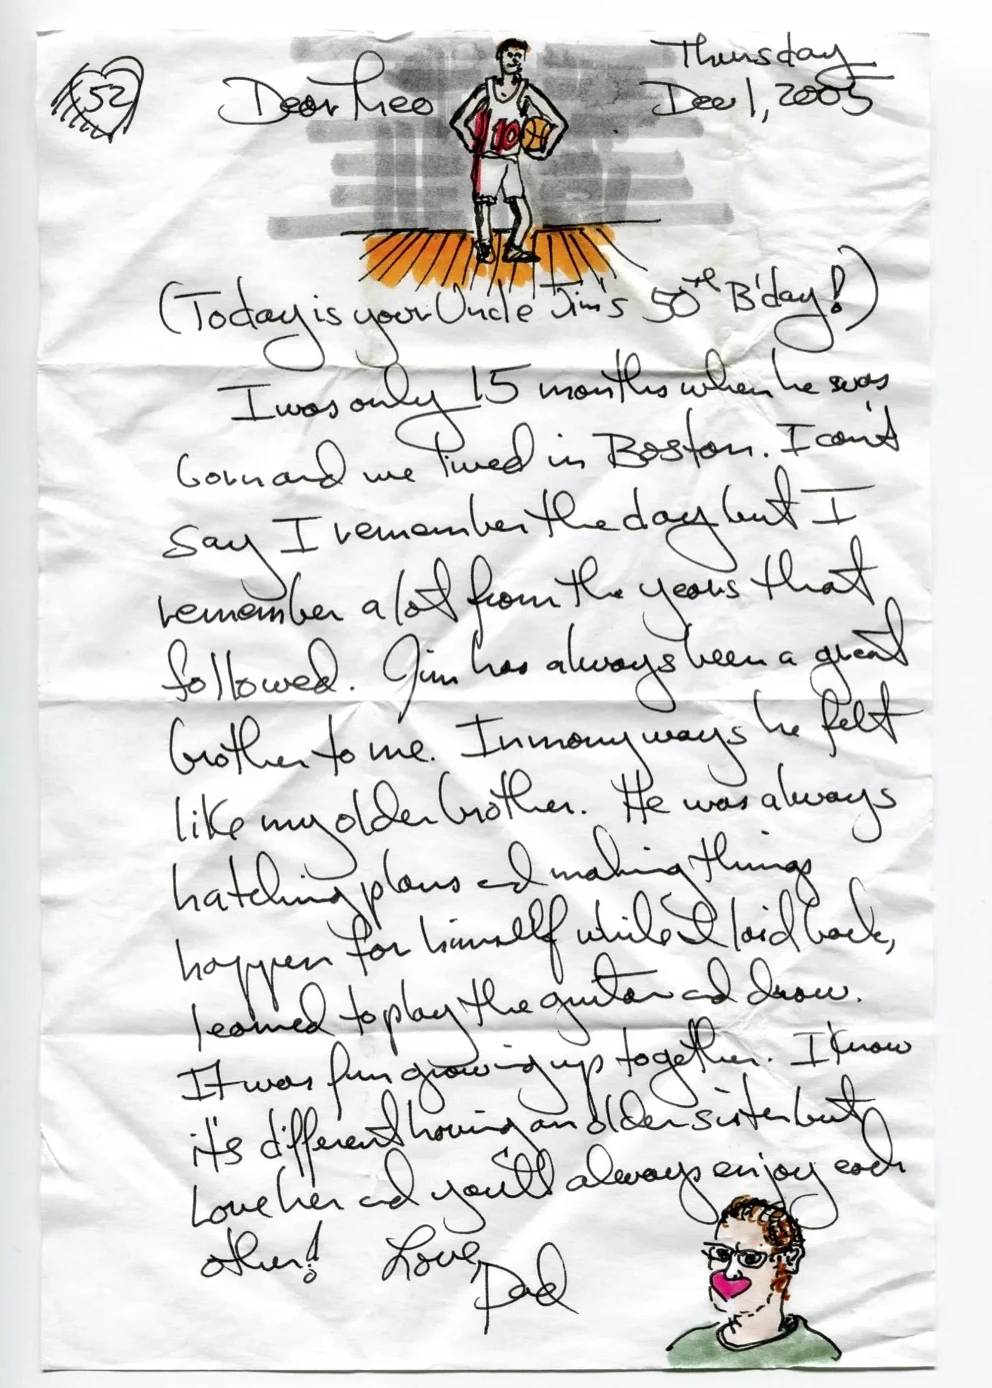 52
Thursday
Dear Theo
Dec 1, 2005
10
(Today is your Uncle Jim's 50th B'day!)
I was only 15 months when he was
born and we lived in Boston. I can't
say I remember the day but I
remember a lot from the years that
followed. Jim has always been a great
brother to me. In many ways he felt
like my older brother. He was always
hatching plans and making things
happen for himself while I laid back,
learned to play the guitar and draw.
It was fun growing up together. I know
it's different having an older sister but
Love her and you'll always enjoy each
other! Love,
Dad